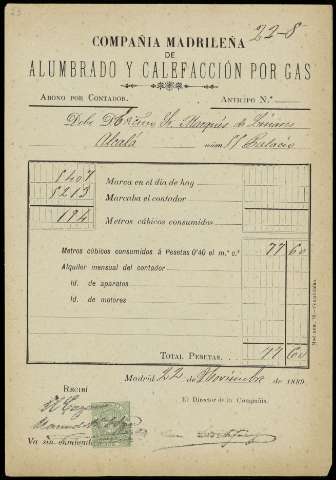 22-8
COMPAÑIA MADRILEÑA
DE
ALUMBRADO Y CALEFACCIÓN POR GAS
ABONO POR CONTADOR. ANTICIPO N.º
Debe D. Excmo Sr. Marqués de Linares
Alcalá núm. 55 Palacio
5407 Marca en el día de hoy
5213 Marcaba el contador
194 Metros cúbicos consumidos
Metros cúbicos consumidos á Pesetas 0'40 el m.º c.º 77 60
Alquiler mensual del contador
Id. de aparatos
Id. de motores
TOTAL PESETAS. 77 60
Madrid 22 de Noviembre de 1889.
RECIBÍ
El Director de la Compañía,
El Cajero
Va sin enmienda